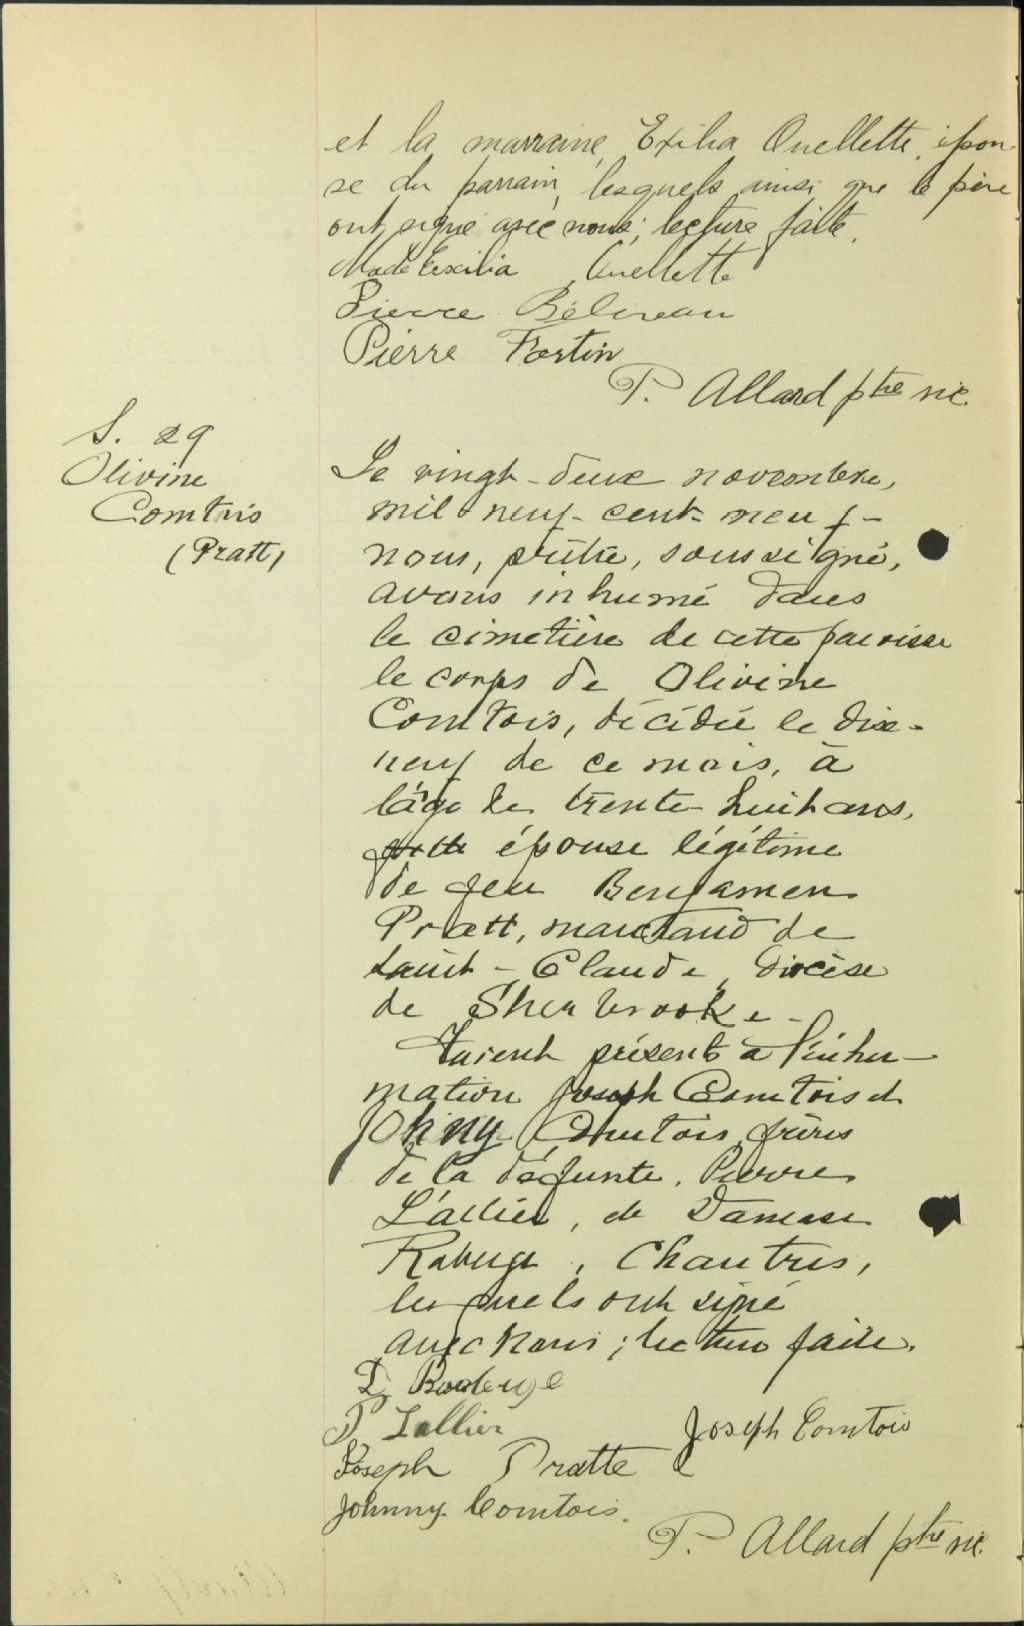 et la marraine, Exilia Ouellette, épou-
se du parrain, lesquels ainsi que le père
ont signé avec nous; lecture faite.
Made Exilia Ouellette
Pierre Béliveau
Pierre Fortin
P. Allard ptre vic.
S. 29
Olivine
Comtois
(Pratt)
Le vingt-deux novembre,
mil neuf-cent-neuf-
nous, prêtre, soussigné,
avons inhumé dans
le cimetière de cette paroisse
le corps de Olivine
Comtois, décédée le dix-
neuf de ce mois, à
l'âge de trente-huit ans,
épouse légitime
de feu Benjamen
Pratt, marchand de
Saint-Claude, diocèse
de Sherbrooke-
Étaient présents à l'inhu-
mation Joseph Comtois et
Johnny Comtois, frères
de la défunte, Pierre
Lallier, de Damase
Roberge, Chantres,
lesquels ont signé
avec nous; lecture faite.
D Roberge
P Lallier
Joseph Comtois
Joseph Pratte
Johnny Comtois.
P. Allard ptre vic.